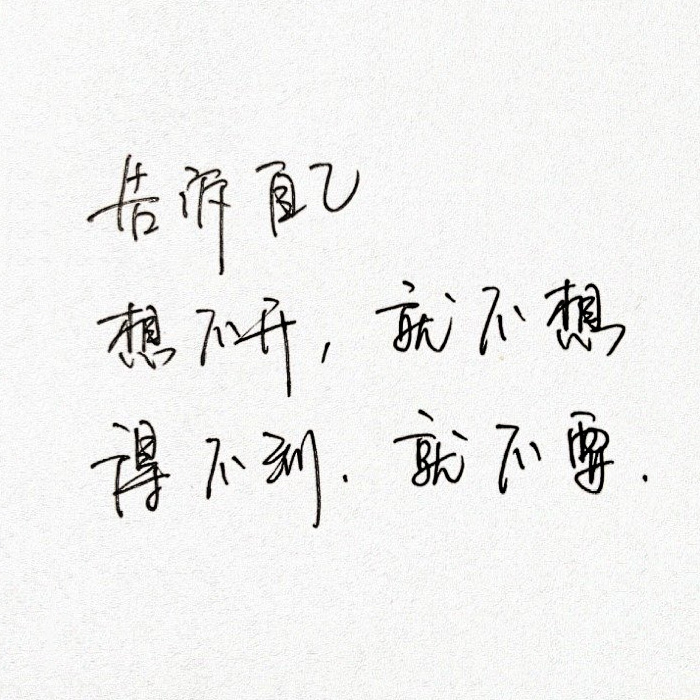 告诉自己
想不开，就不想
得不到.就不要.